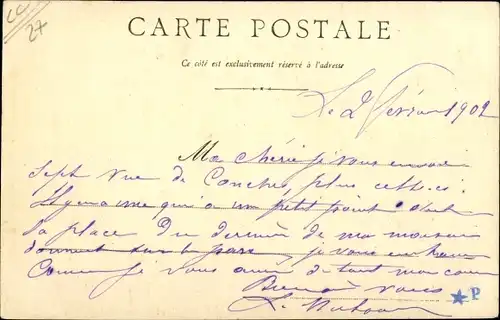 CC
27
CARTE POSTALE
Ce côté est exclusivement réservé à l'adresse
Le 2 février 1902
Ma chérie je vous envoie
sept vue de Conches, plus celle-ci
Il y en a une qui a un petit point c'est
la place du derrière de ma maison
donnant sur le parc, je vous
Comme je vous aime de tout mon cœur
vous
P